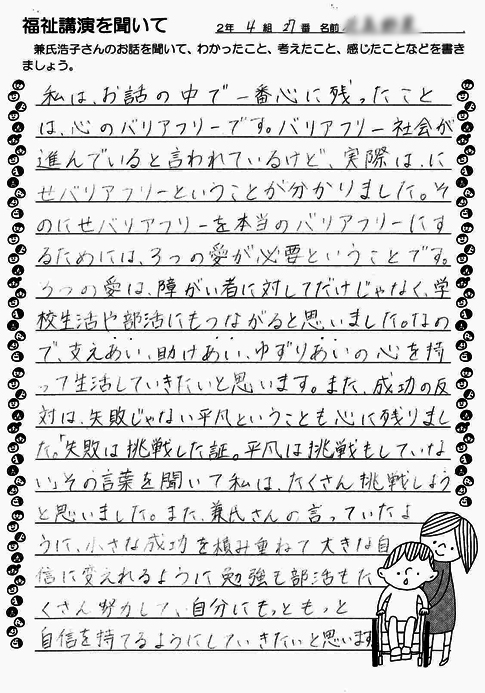 福祉講演を聞いて
2年 4組 27番 名前
兼氏浩子さんのお話を聞いて、わかったこと、考えたこと、感じたことなどを書きましょう。
私は、お話の中で一番心に残ったこと
は、心のバリアフリーです。バリアフリー社会が
進んでいると言われているけど、実際は、に
せバリアフリーということが分かりました。そ
のにせバリアフリーを本当のバリアフリーにす
るためには、3つの愛が必要ということです。
3つの愛は、障がい者に対してだけじゃなく、学
校生活や部活にもつながると思いました。なの
で、支えあい、助けあい、ゆずりあいの心を持
って生活していきたいと思います。また、成功の反
対は、失敗じゃない平凡ということも心に残りまし
た。「失敗は挑戦した証。平凡は挑戦もしていな
い」その言葉を聞いて私は、たくさん挑戦しよう
と思いました。また、兼氏さんの言っていたよ
うに、小さな成功を積み重ねて大きな自
信に変えれるように勉強も部活もた
くさん努力して、自分にもっともっと
自信を持てるようにしていきたいと思います